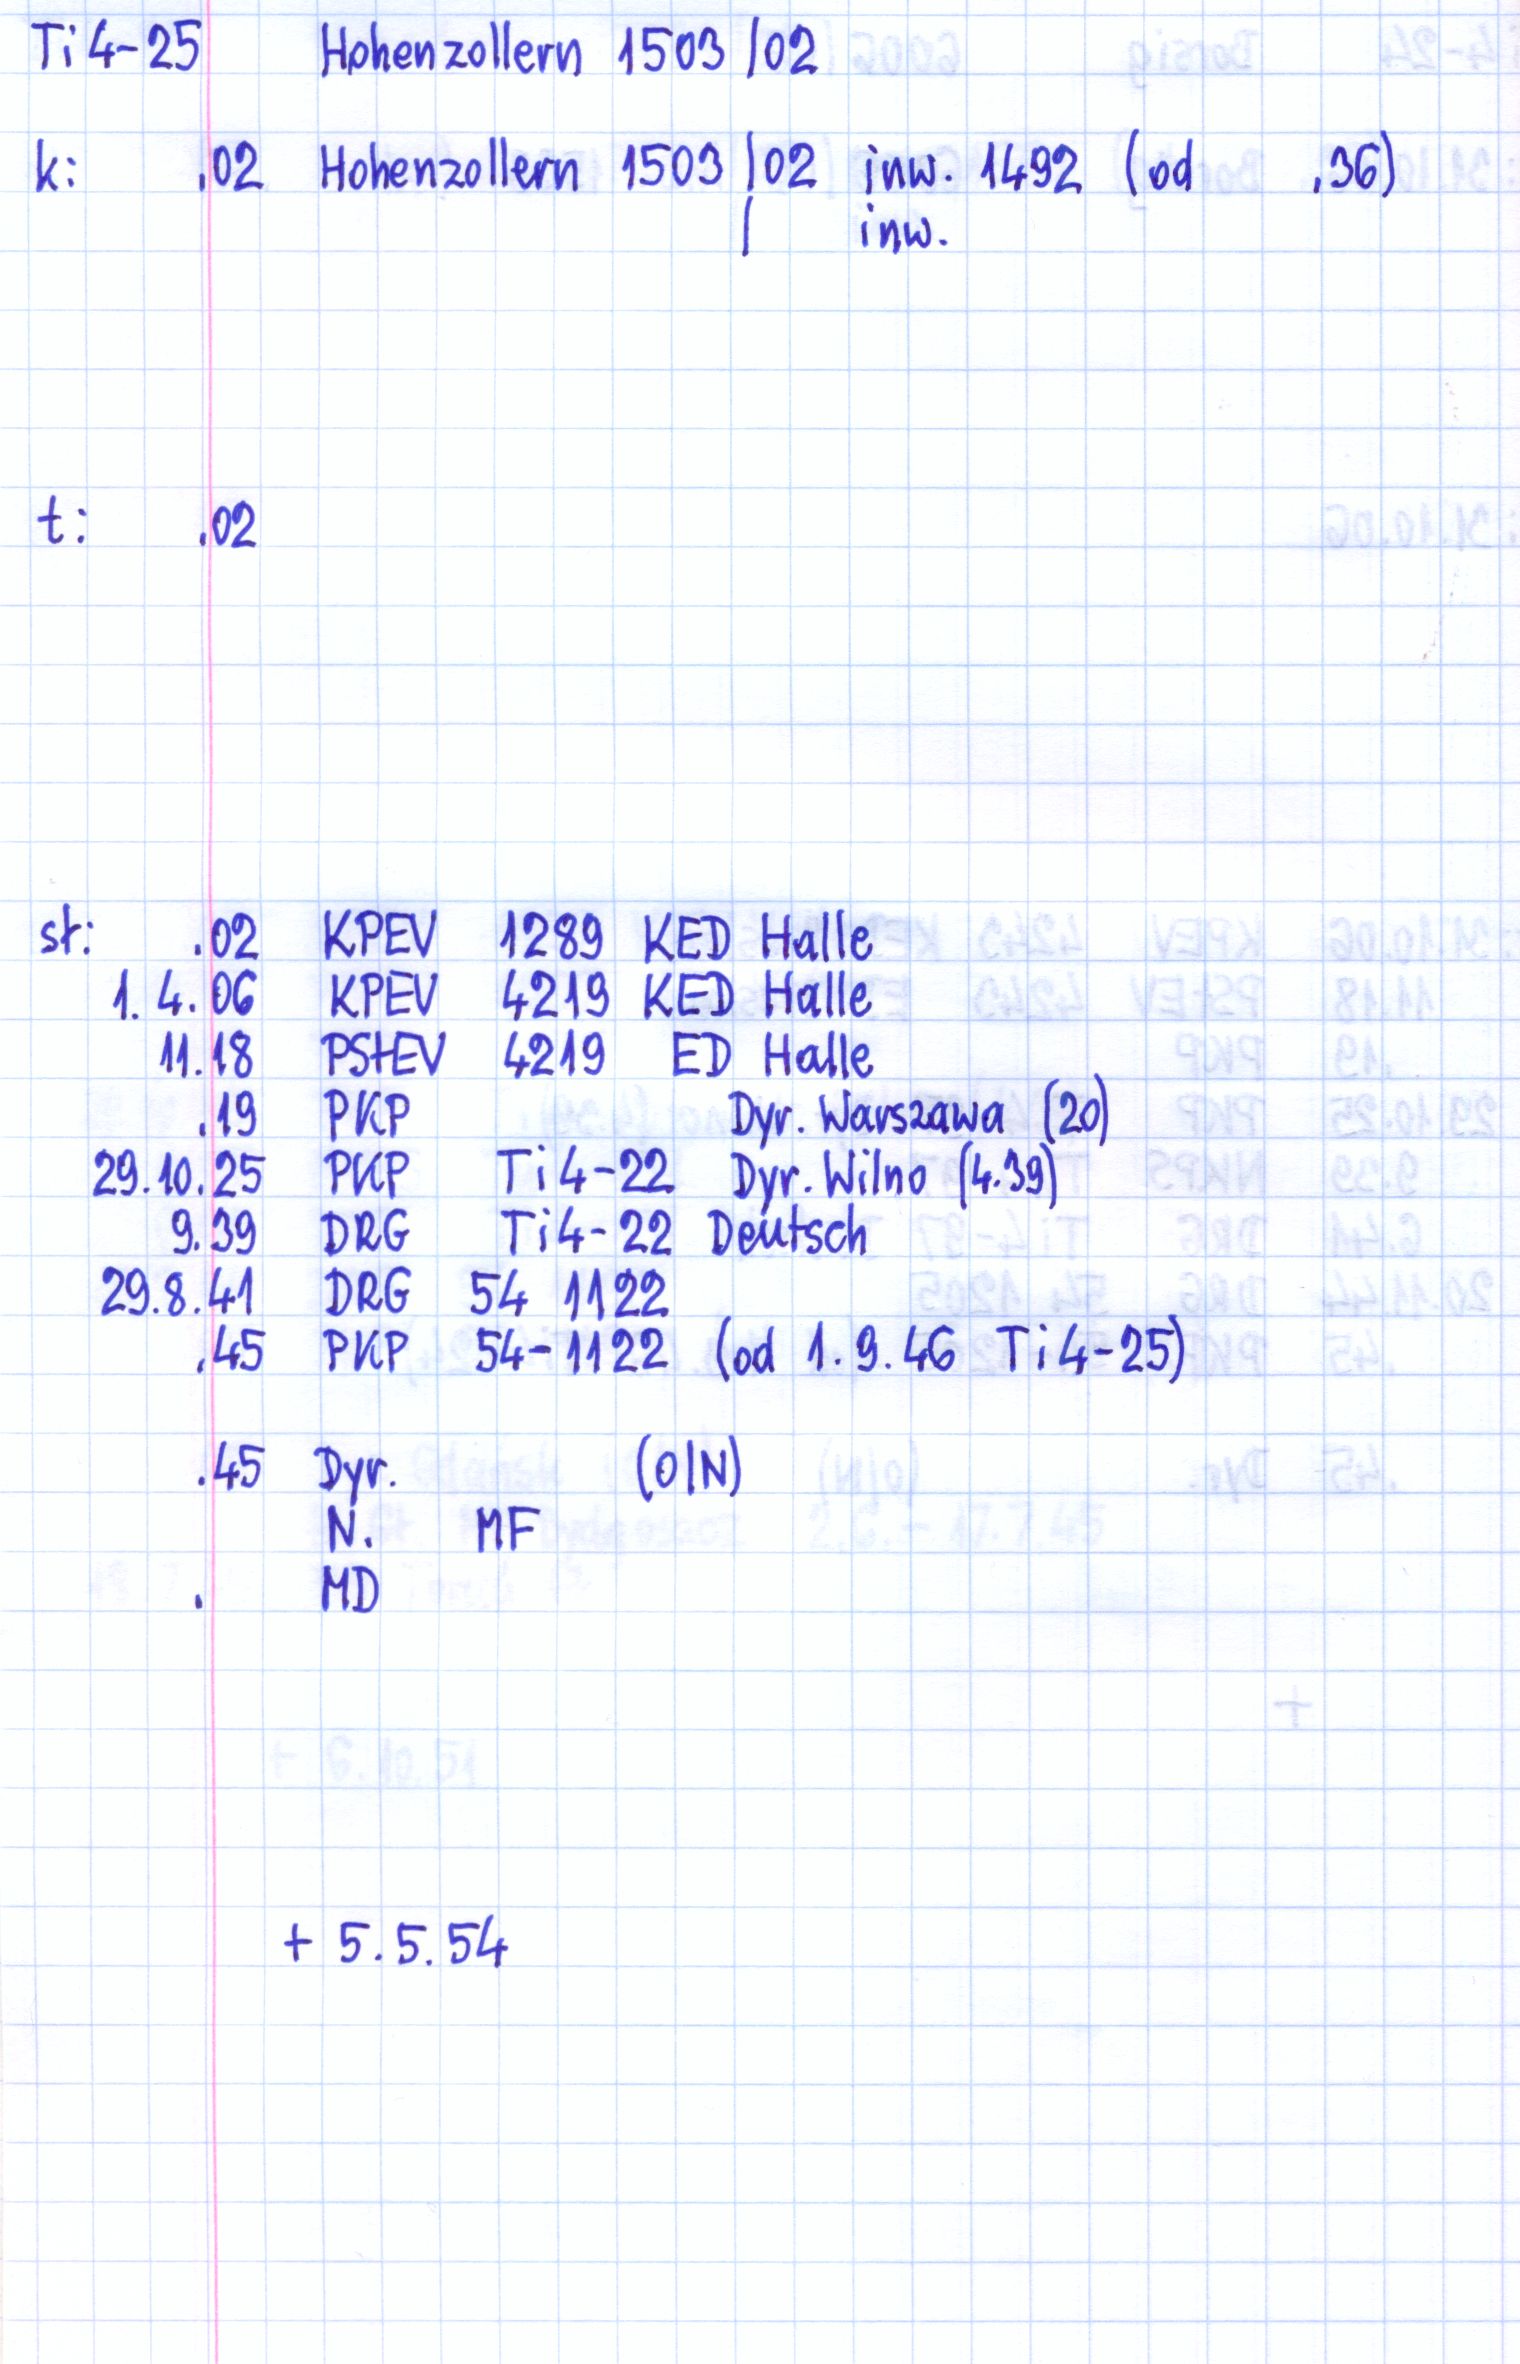 Ti4-25 Hohenzollern 1503/02
k: .02 Hohenzollern 1503/02 inw. 1492 (od .36)
/ inw.
t: .02
st: .02 KPEV 1289 KED Halle
1.4.06 KPEV 4219 KED Halle
11.18 PStEV 4219 ED Halle
.19 PKP Dyr. Warszawa (20)
29.10.25 PKP Ti4-22 Dyr. Wilno (4.39)
9.39 DRG Ti4-22 Deutsch
29.8.41 DRG 54 1122
.45 PKP 54-1122 (od 1.9.46 Ti4-25)
.45 Dyr. (O/N)
N. MF
. MD
+ 5.5.54